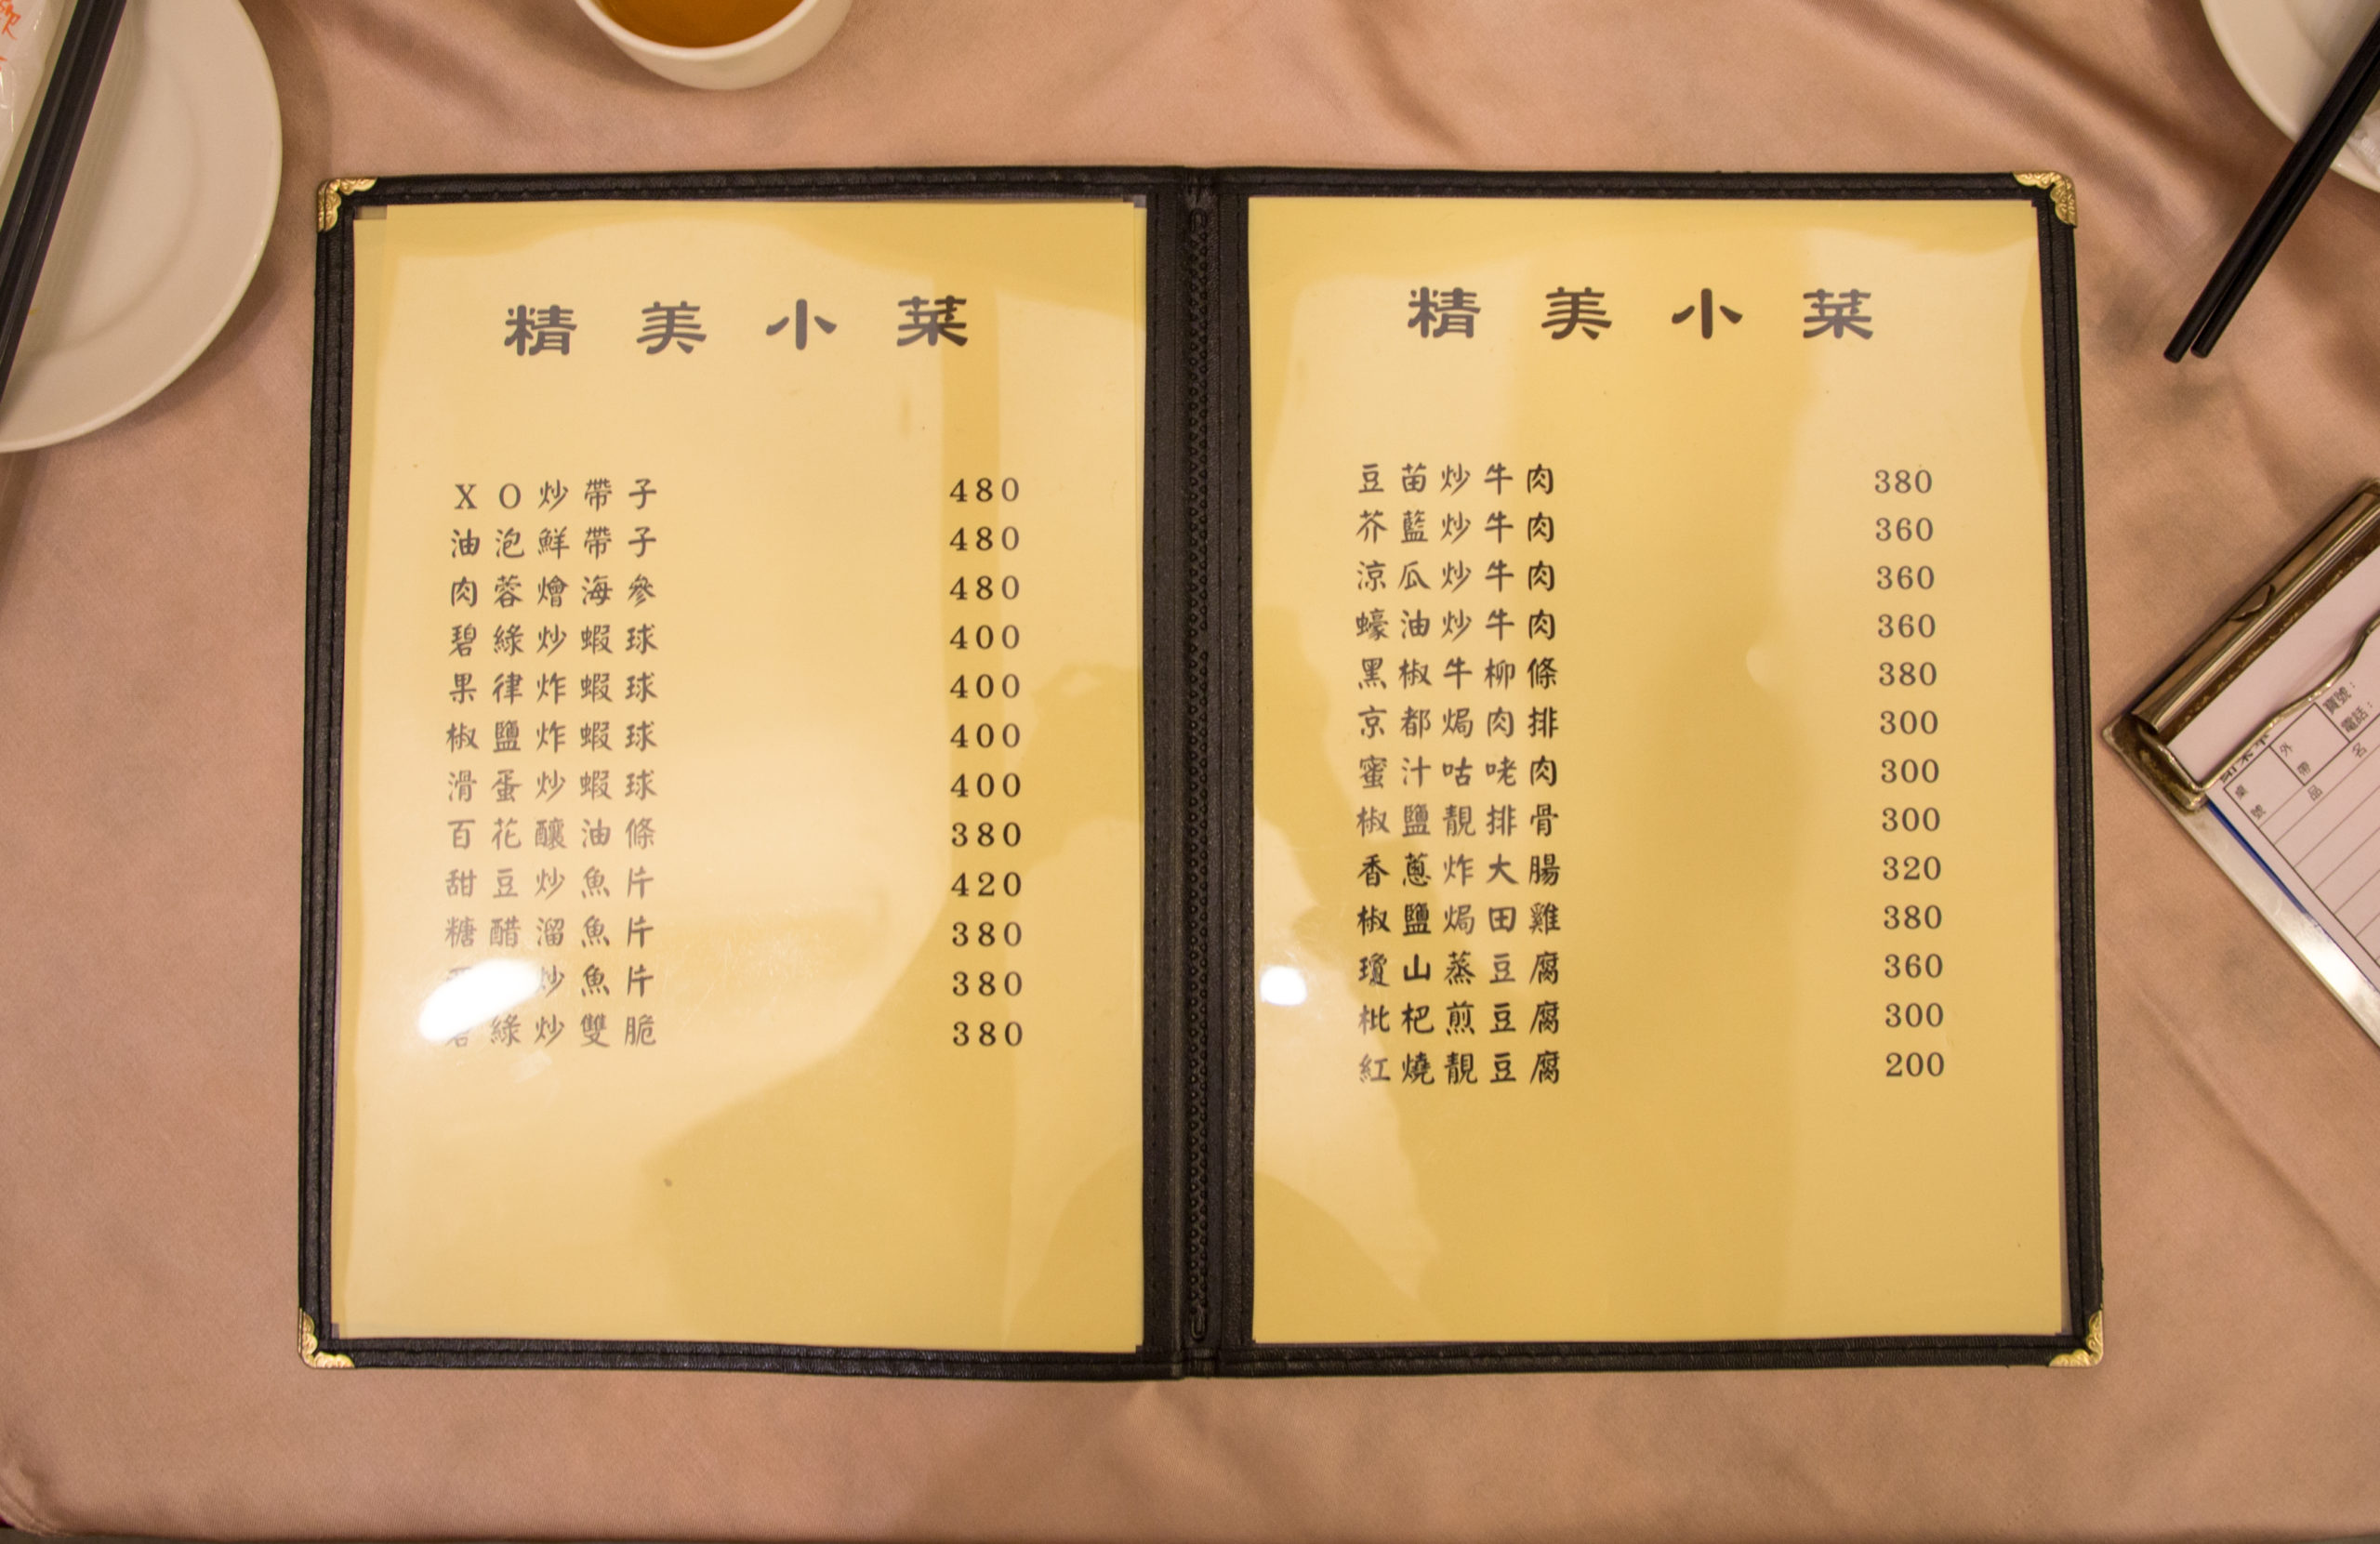 精美小菜
XO炒帶子 480
油泡鮮帶子 480
肉蓉燴海參 480
碧綠炒蝦球 400
果律炸蝦球 400
椒鹽炸蝦球 400
滑蛋炒蝦球 400
百花釀油條 380
甜豆炒魚片 420
糖醋溜魚片 380
炒魚片 380
綠炒雙脆 380
精美小菜
豆苗炒牛肉 380
芥藍炒牛肉 360
涼瓜炒牛肉 360
蠔油炒牛肉 360
黑椒牛柳條 380
京都焗肉排 300
蜜汁咕咾肉 300
椒鹽靚排骨 300
香蔥炸大腸 320
椒鹽焗田雞 380
瓊山蒸豆腐 360
枇杷煎豆腐 300
紅燒靚豆腐 200
寶號：
電話：
外帶
桌號
品名